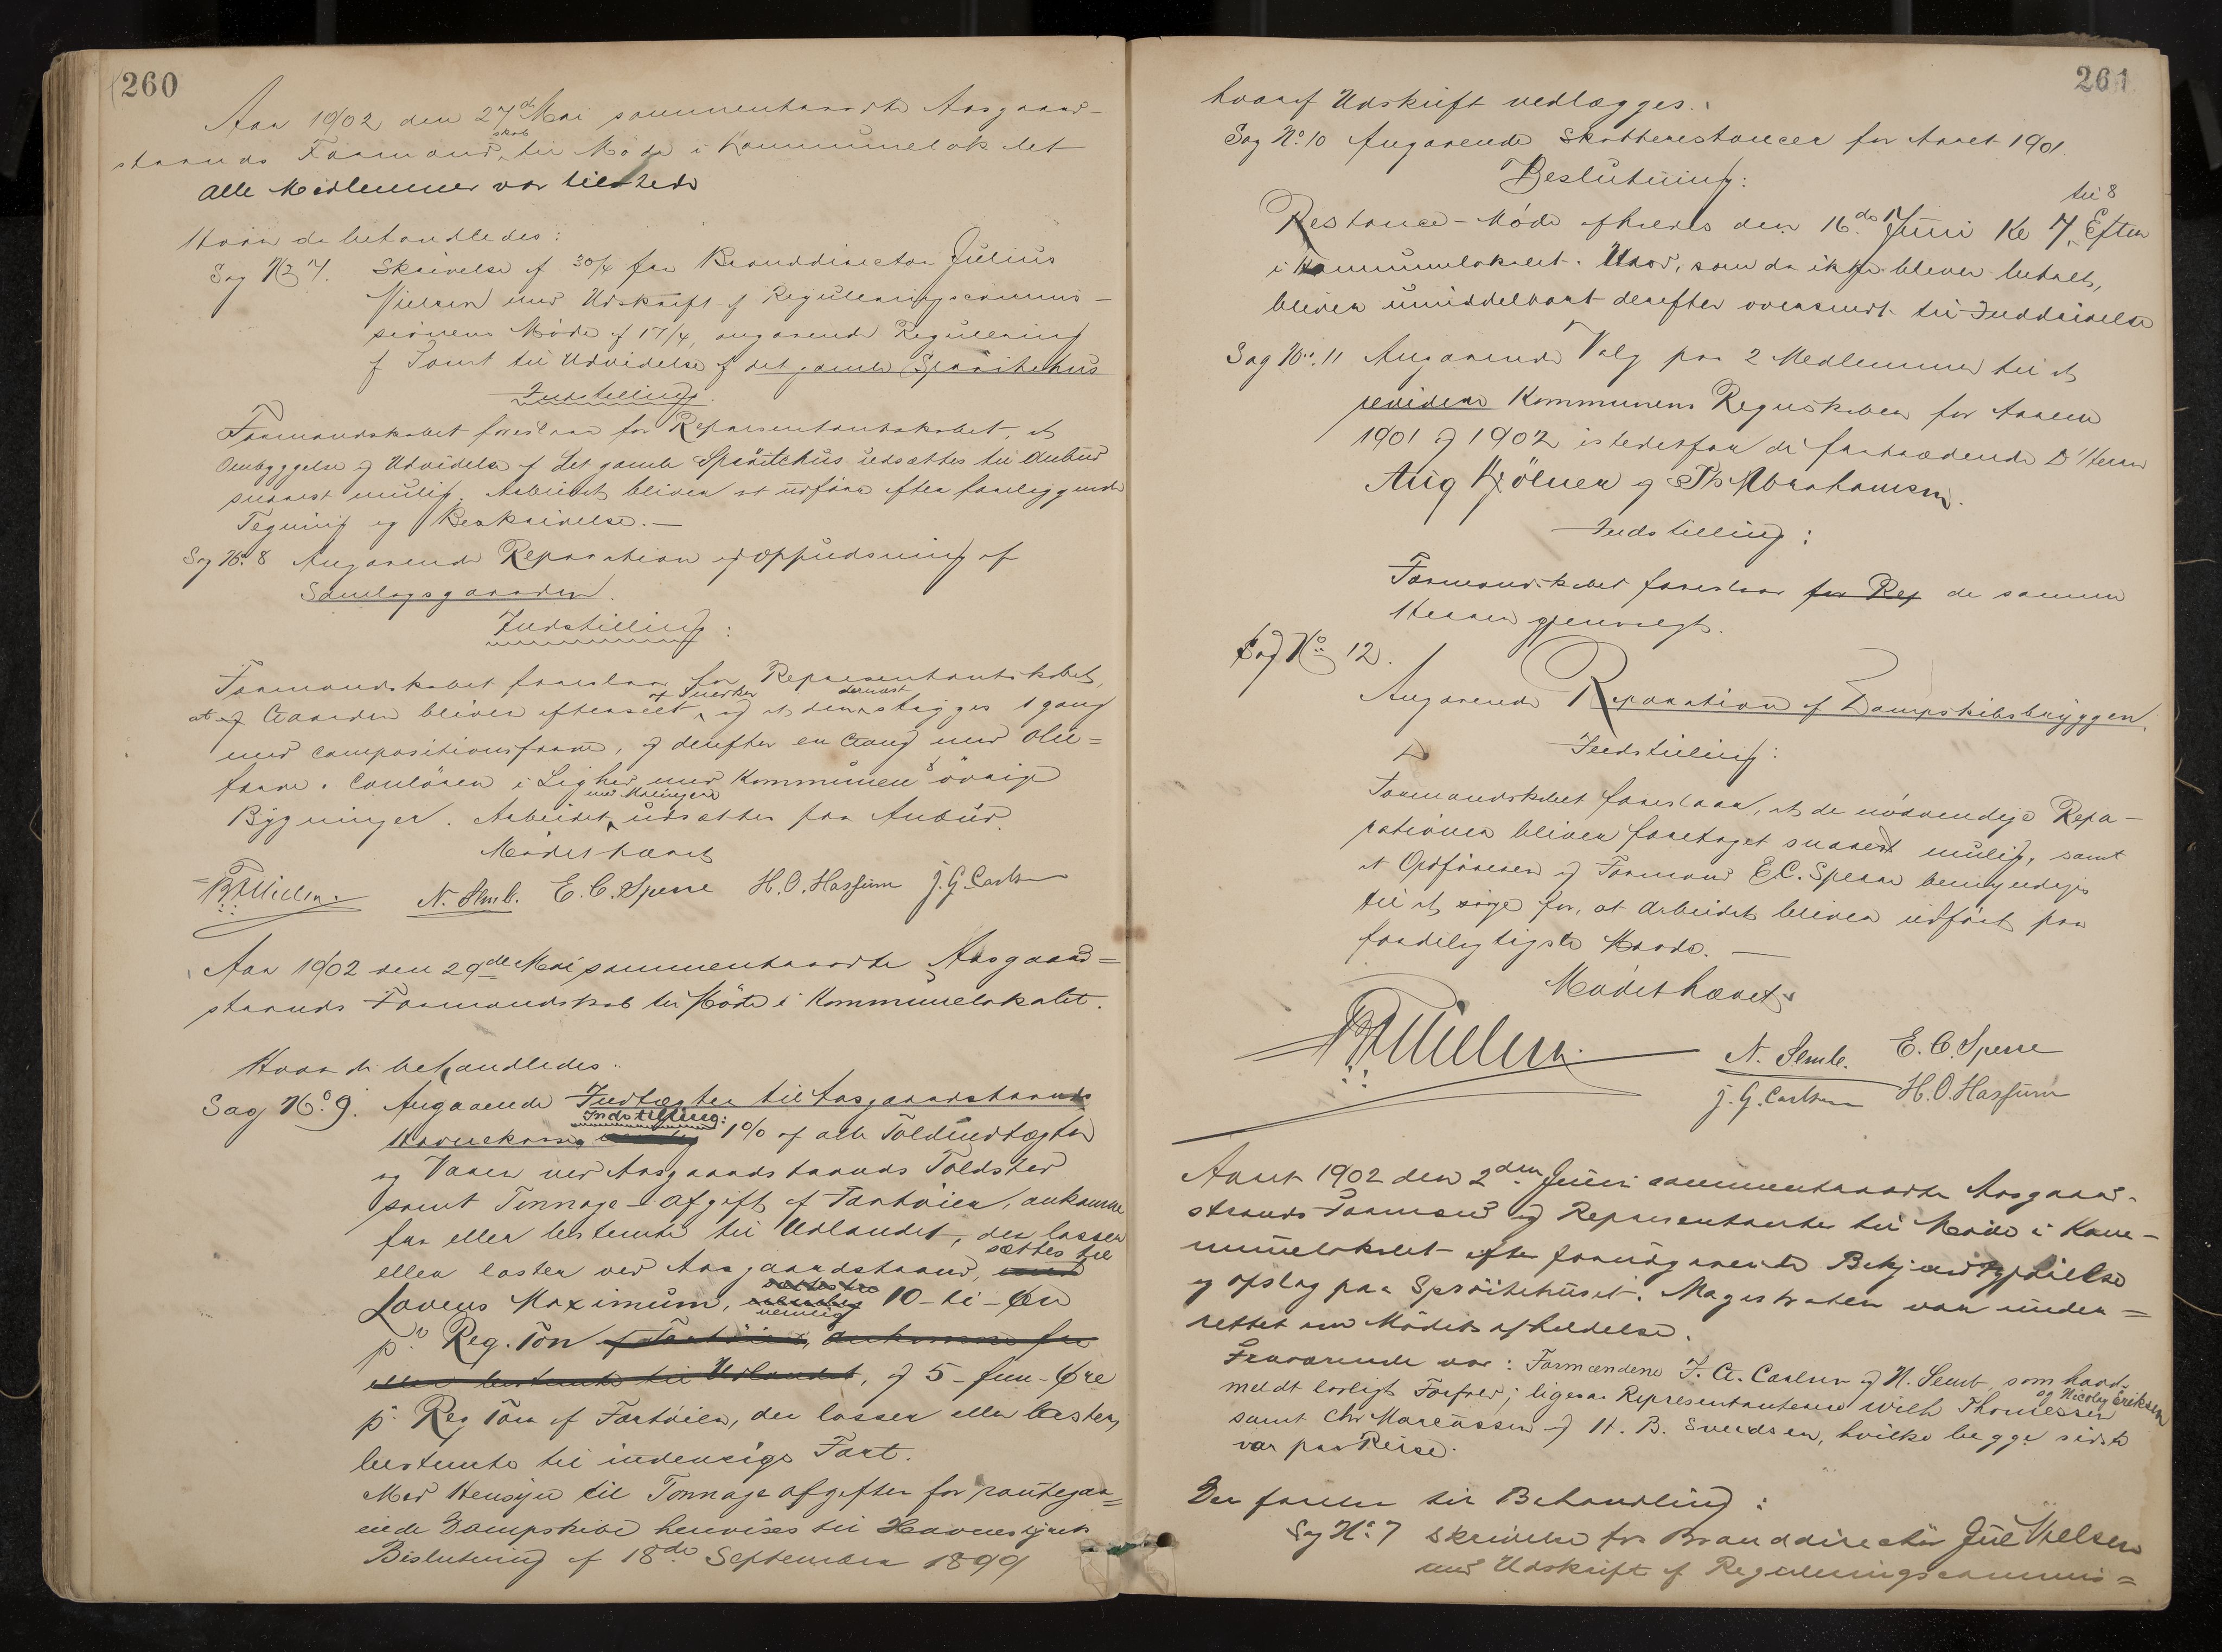 260
Aar 1902 den 27de Mai sammentraadte Aasgaard-
strands Formandskab til Møde i Kommunelokalet
Alle Medlemmer var tilstede
Hvor da behandledes:
Sag No 7. Skrivelse af 30/4 fra Branddirector Julius
Nielsen med Udskrift af Reguleringscommis-
sionens Møde af 17/4, angaaende Regulering
af Tomt til Udvidelse af det gamle Sprøitehus
Indstilling.
Formandskabet foreslaar for Repræsentantskabet, at
Ombyggelse og Udvidelse af det gamle Sprøitehus udsættes til Anbud
snarest mulig. Arbeidet bliver at udføre efter foreliggende
Tegning og Beskrivelse.—
Sag No. 8 Angaaende Reparation og oppudsning af
Samlagsgaarden.
Indstilling:
Formandskabet foreslaar for Repræsentantskabet,
at Gaarden bliver efterseet af Snedker, og at den dernæst stryges 1 gang
med compositionsfarve, og derefter en Gang med Olie=
farve. Couløren i Lighed med Kommunens øvrige
Bygninger. Arbeidet med Malingen udsættes paa Anbud.
Mødet hævet
N. Semb. E. C. Sperre H. O. Hasfum J. G. Carlsen
Aar 1902 den 29de Mai sammentraadte Aasgaard=
strands Formandskab til Møde i Kommunelokalet.
Hvor da behandledes:
Sag No. 9. Angaaende Indtægter til Aasgaardstrands
Havnekasse Indstilling: 1% af alle Toldindtægter
og Varer ved Aasgaardstrands Toldsted
samt Tonnage-afgift af Fartøier, ankomne
fra eller bestemte til Udlandet, der losser
eller laster ved Aasgaardstrand, sættes til
Lovens Maximum, nemlig 10-ti-Øre
pr. Reg. Ton af Fartøier, ankomne fra
eller bestemte til Udlandet, og 5-fem-Øre
pr. Reg Ton af Fartøier, der losser eller laster,
bestemte til indenrigs Fart.
Med Hensyn til Tonnage afgiften for routegaa=
ende Dampskibe henvises til Havnestyrets
Beslutning af 18de September 1899
261
hvoraf Udskrift vedlægges.
Sag No. 10 Angaaende Skatterestancer for Aaret 1901.
Beslutning:
Restance-Møde afholdes den 16de Juni Kl 7 til 8 Efterm
i Kommunelokalet. Hvad, som da ikke bliver betalt,
bliver umiddelbart derefter oversendt til Inddrivelse
Sag No. 11 Angaaende Valg paa 2 Medlemmer til at
revidere Kommunens Regnskaber for Aarene
1901 og 1902 istedetfor de fratrædende D'Herrer
Aug Kjølner og Th Abrahamsen.
Indstilling:
Formandskabet foreslaar for Rep de samme
Herrer gjenvalgt.
Sag No 12.
Angaaende Reparation af Dampskibsbryggen.
Indstilling:
Formandskabet foreslaar, at de nødvendige Repa-
rationer bliver foretaget snarest mulig, samt
at Ordføreren og Formand E.C. Sperre bemyndiges
til at sørge for, at Arbeidet bliver udført paa
fordelagtigste Maade.—
Mødet hævet
N. Semb. E. C. Sperre
J. G. Carlsen H. O. Hasfum
Aaret 1902 den 2den Juni sammentraadte Aasgaard-
strands Formænd og Repræsentanter til Møde i Kom-
munelokalet efter forudgaaende Bekjendtgjørelse
og opslag paa Sprøitehuset. Magistraten var under=
rettet om Mødets afholdelse.
Fraværende var: Formændene J. G. Carlsen og N. Semb som havde
meldt lovligt Forfald; ligesaa Repræsentanterne Wilh Thomessen og Nicolay Eriksen
samt Chr Marcussen og H. B. Svendsen, hvilke begge sidste
var paa Reise.
Der foretoges til Behandling:
Sag No. 7 Skrivelse fra Branddirectør Jul Nielsen
med Udskrift af Reguleringscommis=